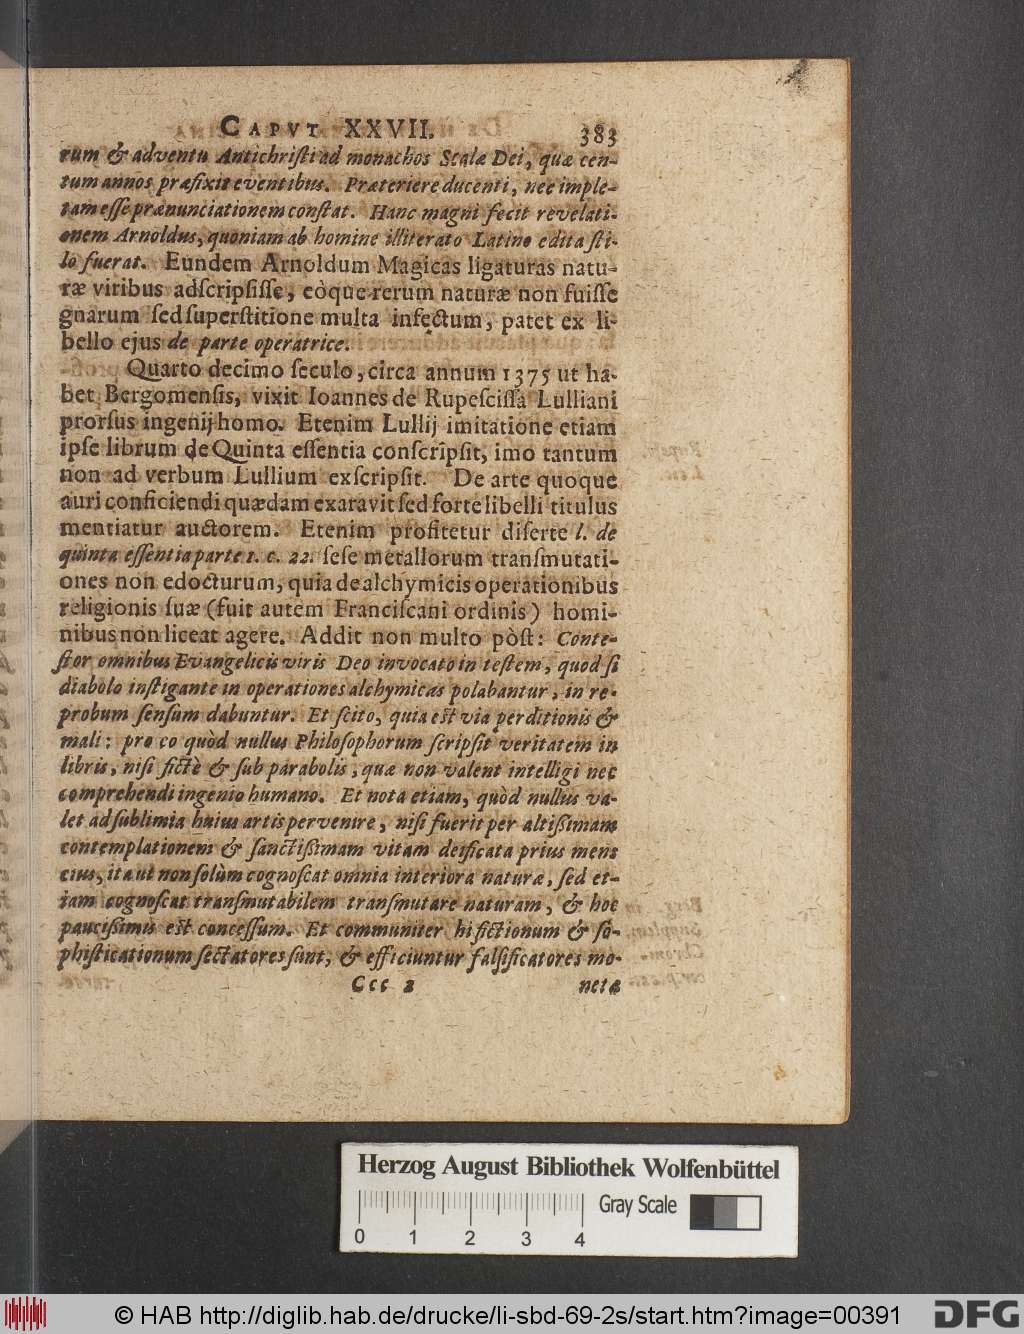 CAPVT XXVII. 383
rum & adventu Antichriſti ad monachos Scalæ Dei, quæ cen-
tum annos præfixit eventibus. Præteriere ducenti, nec imple-
tam eſſe prænunciationem conſtat. Hanc magni fecit revelati-
onem Arnoldus, quoniam ab homine illiterato Latino edita ſti-
lo fuerat. Eundem Arnoldum Magicas ligaturas natu-
ræ viribus adſcripſiſſe, eòque rerum naturæ non fuiſſe
gnarum ſed ſuperſtitione multa infectum, patet ex li-
bello ejus de parte operatrice.
Quarto decimo ſeculo, circa annum 1375 ut ha-
bet Bergomenſis, vixit Ioannes de Rupeſciſſa Lulliani
prorſus ingenij homo. Etenim Lullij imitatione etiam
ipſe librum de Quinta eſſentia conſcripſit, imo tantum
non ad verbum Lullium exſcripſit. De arte quoque
auri conficiendi quædam exaravit ſed forte libelli titulus
mentiatur auctorem. Etenim profitetur diſerte l. de
quinta eſſentia parte 1. c. 22. ſeſe metallorum tranſmutati-
ones non edocturum, quia de alchymicis operationibus
religionis ſuæ (fuit autem Franciſcani ordinis) homi-
nibus non liceat agere. Addit non multo pòſt: Conte-
ſtor omnibus Evangelicis viris Deo invocato in teſtem, quod ſi
diabolo inſtigante in operationes alchymicas polabantur, in re-
probum ſenſum dabuntur. Et ſcito, quia eſt via perditionis &
mali: pro eo quòd nullus Philoſophorum ſcripſit veritatem in
libris, niſi fictè & ſub parabolis, quæ non valent intelligi nec
comprehendi ingenio humano. Et nota etiam, quòd nullus va-
let ad ſublimia huius artis pervenire, niſi fuerit per altiſſimam
contemplationem & ſanctiſſimam vitam deificata prius mens
eius, ita ut non ſolùm cognoſcat omnia interiora naturæ, ſed et-
iam cognoſcat tranſmutabilem tranſmutare naturam, & hoc
pauciſſimis eſt conceſſum. Et communiter hi fictionum & ſo-
phiſticationum ſectatores ſunt, & efficiuntur falſificatores mo-
Ccc 2 netæ
Herzog August Bibliothek Wolfenbüttel
Gray Scale
0 1 2 3 4
© HAB http://diglib.hab.de/drucke/li-sbd-69-2s/start.htm?image=00391 DFG